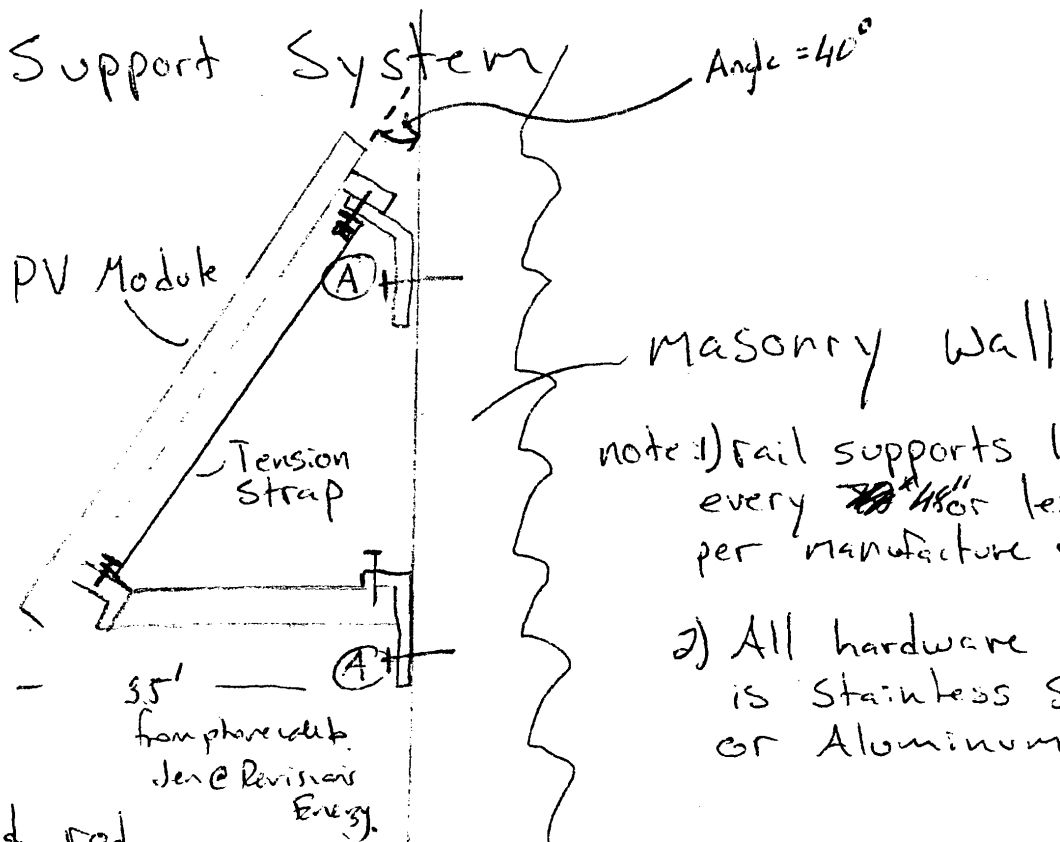 Support System
Angle = 40°
PV Module
A
masonry wall
Tension
Strap
note: 1) rail supports
every 48" or
per manufacture
2) All hardware
is Stainless
or Aluminum
A
3.5'
from phone call to
Jen @ Revision's
Energy.
rod